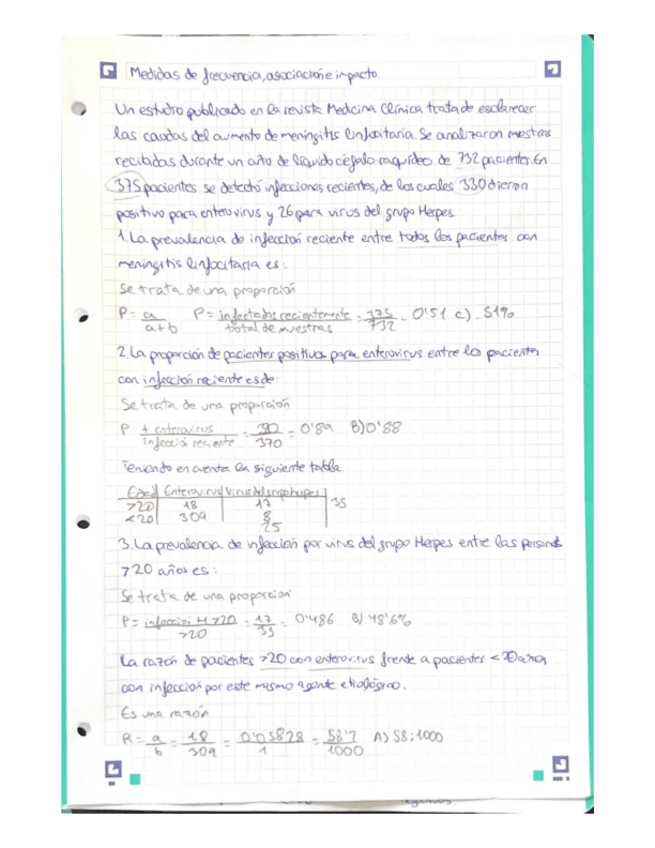 Medidas de frecuencia, asociación e impacto.
Un estudio publicado en la revista Medicina Clínica trata de esclarecer
las causas del aumento de meningitis linfocitaria. Se analizaron muestras
recibidas durante un año de líquido céfalo raquídeo de 732 pacientes. En
375 pacientes se detectó infecciones recientes, de los cuales 330 dieron
positivo para enterovirus y 26 para virus del grupo Herpes.
1. La prevalencia de infección reciente entre todos los pacientes con
meningitis linfocitaria es:
Se trata de una proporción
P = a / a+b P = infectados recientemente / total de muestras = 375 / 732 = 0'51 c). 51%
2. La proporción de pacientes positivos para enterovirus entre los pacientes
con infección reciente es de:
Se trata de una proporción
P = + enterovirus / infección reciente = 330 / 370 = 0'89 B) 0'88
Teniendo en cuenta la siguiente tabla
Edad Enterovirus Virus del grupo herpes
>20 18 17 35
<20 309 8
25
3. La prevalencia de infección por virus del grupo Herpes entre las personas
>20 años es:
Se trata de una proporción
P = infección H >20 / >20 = 17 / 35 = 0'486 B) 48'6%
La razón de pacientes >20 con enterovirus frente a pacientes <20 años
con infección por este mismo agente etiológico.
Es una razón
R = a / b = 18 / 309 = 0'05828 / 1 = 58'2 / 1000 A) 58:1000